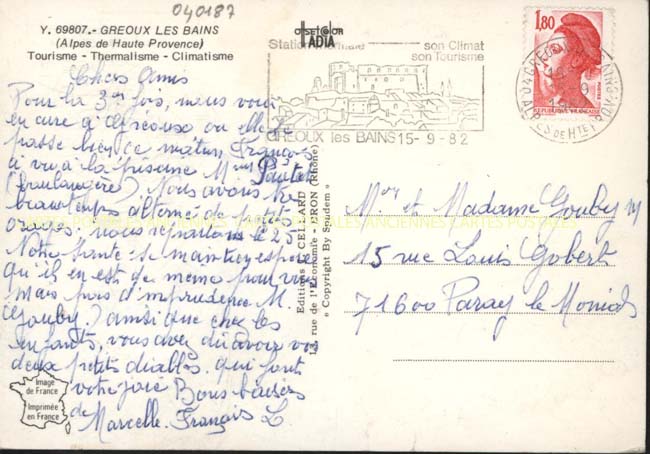 040187
Y. 69807.- GREOUX LES BAINS
(Alpes de Haute Provence)
Tourisme - Thermalisme - Climatisme
OFFSET COLOR
IADIA
Station son Climat
son Tourisme
GREOUX les BAINS 15-9-82
1,80
REPUBLIQUE FRANCAISE
Chers Amis
Pour la 3eme fois, nous voici
en cure à Gréoux où elle se
passe bien ce matin François
a vu à la piscine Mme Pautet
(boulangère) Nous avons très
beau temps alterné de petits
orages. nous repartons le 25
Notre santé se maintient espère
qu'il en est de même pour vous
Mais pas d'imprudence M.
Gouby) ainsi que chez les
enfants, vous avez dû avoir vos
deux petits diables qui font
votre joie Bons baisers
de Marcelle. François L.
Editions J. CELLARD
rue de l'Economie - BRON (Rhône)
« Copyright By Spadem »
Mr et Madame Gouby M
15 rue Louis Gobert
71600 Paray le Monial
CARTES POSTALES ANCIENNES CARTES POSTALES
Image
de France
Imprimée
en France